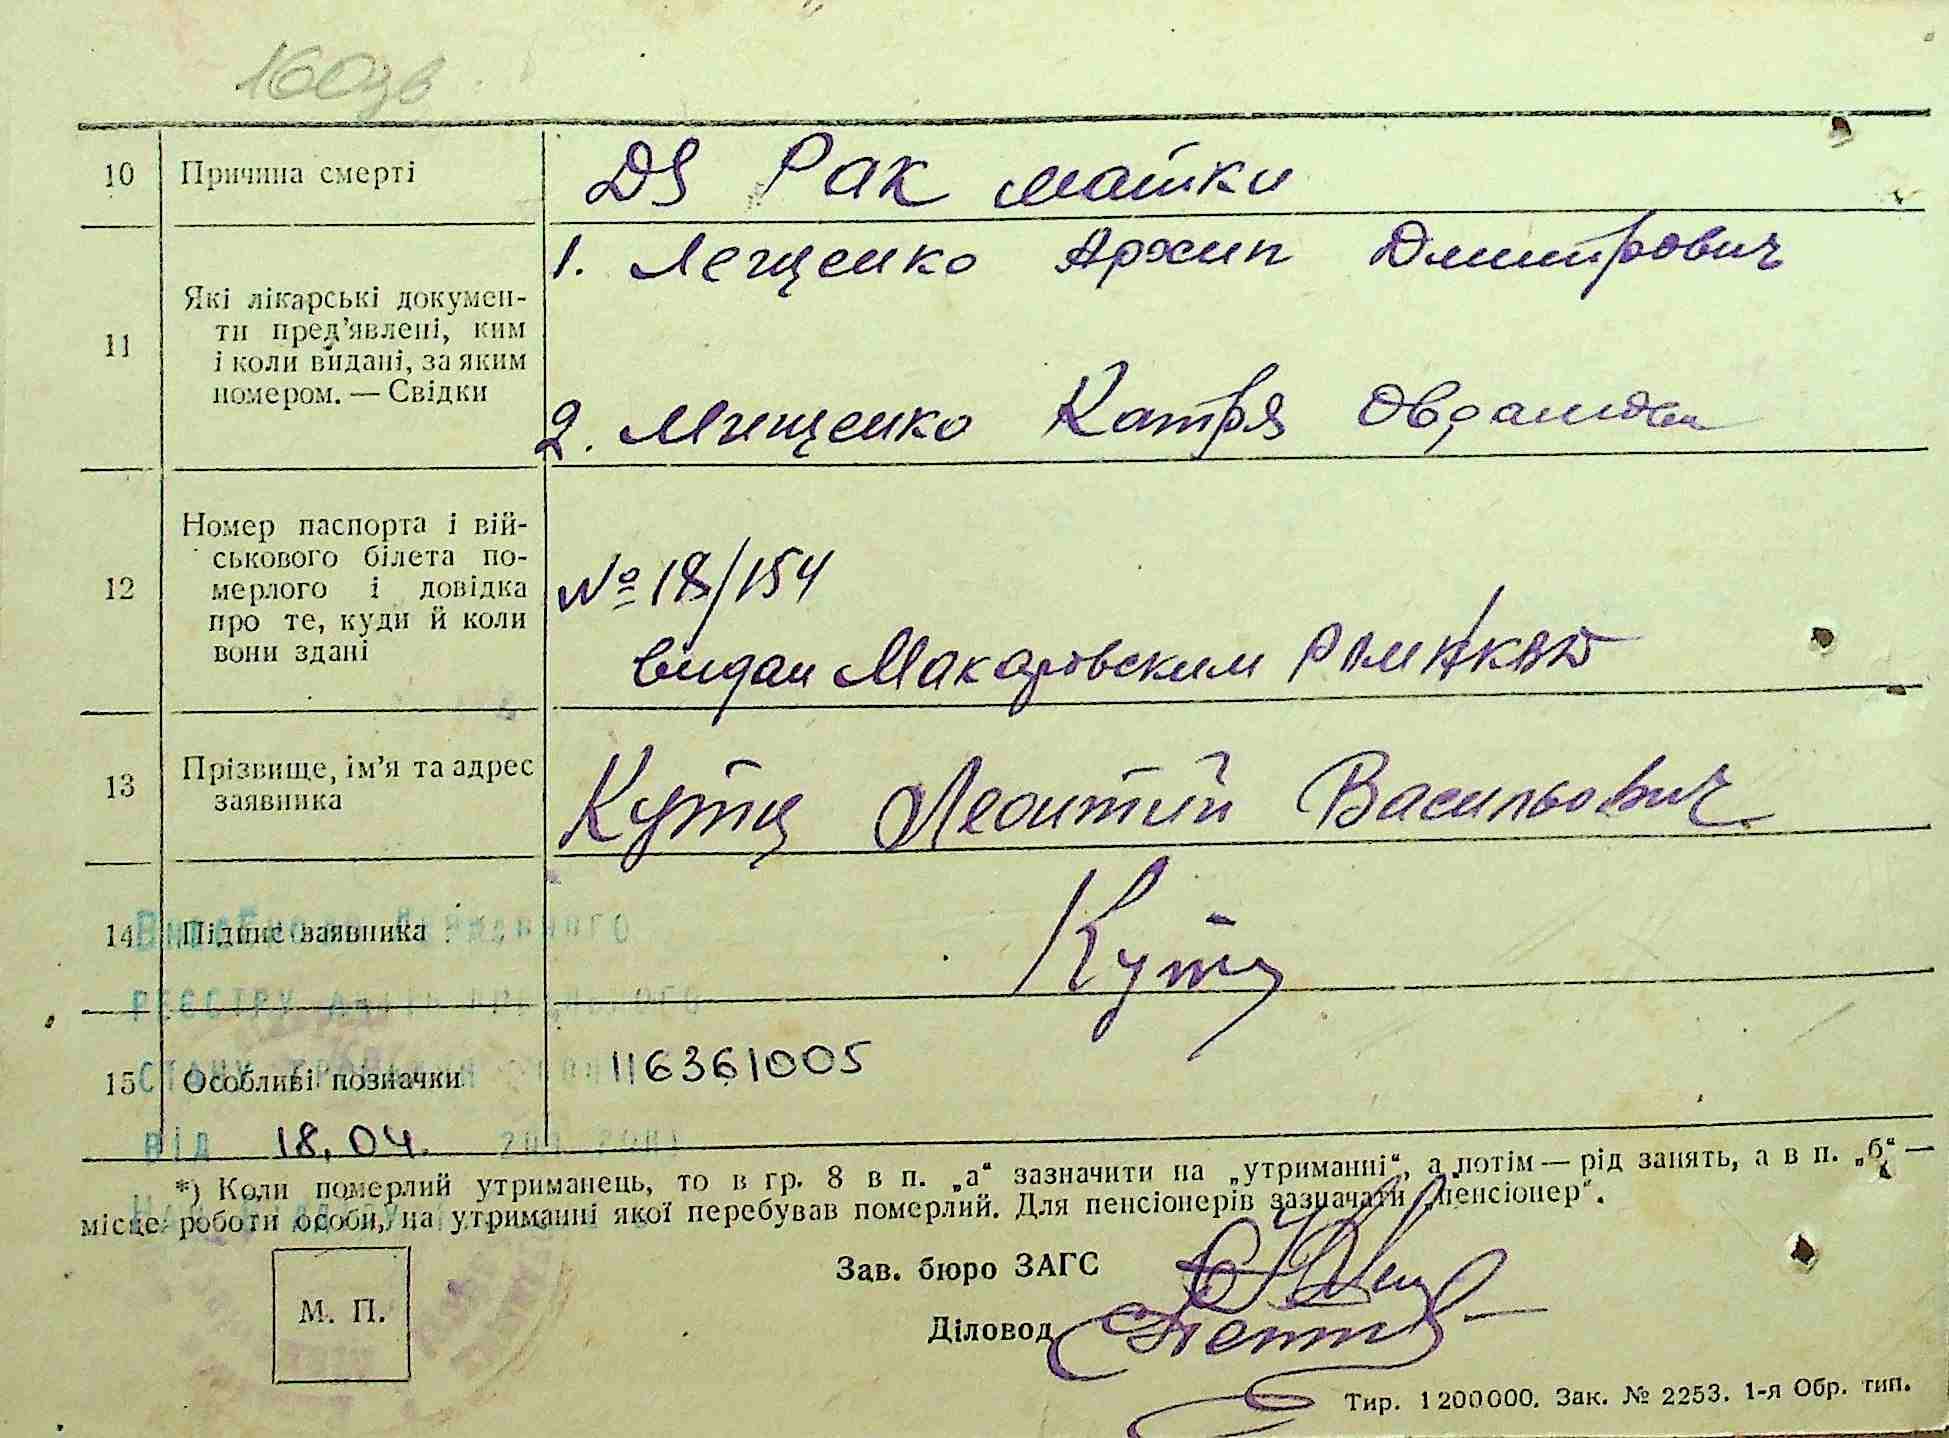 160зв
10 Причина смерті DS Рак матки
11 Які лікарські докумен-
ти пред'явлені, ким
і коли видані, за яким
номером. — Свідки
1. Лещенко Архип Дмитрович
2. Мищенко Катря
12 Номер паспорта і вій-
ськового білета по-
мерлого і довідка
про те, куди й коли
вони здані
№ 18/154
видан Макаровским
13 Прізвище, ім'я та адрес
заявника
Кутц Леонтий Васильович
14 Підпис заявника Кутц
РЕЄСТРУ
15 Особливі позначки 116361005
від 18.04.
*) Коли померлий утриманець, то в гр. 8 в п. „а“ зазначити на „утриманні“, а потім — рід занять, а в п. „б“ —
місце роботи особи, на утриманні якої перебував померлий. Для пенсіонерів зазначати „пенсіонер“.
Зав. бюро ЗАГС
М. П.
Діловод
Тир. 1200000. Зак. № 2253. 1-я Обр. тип.